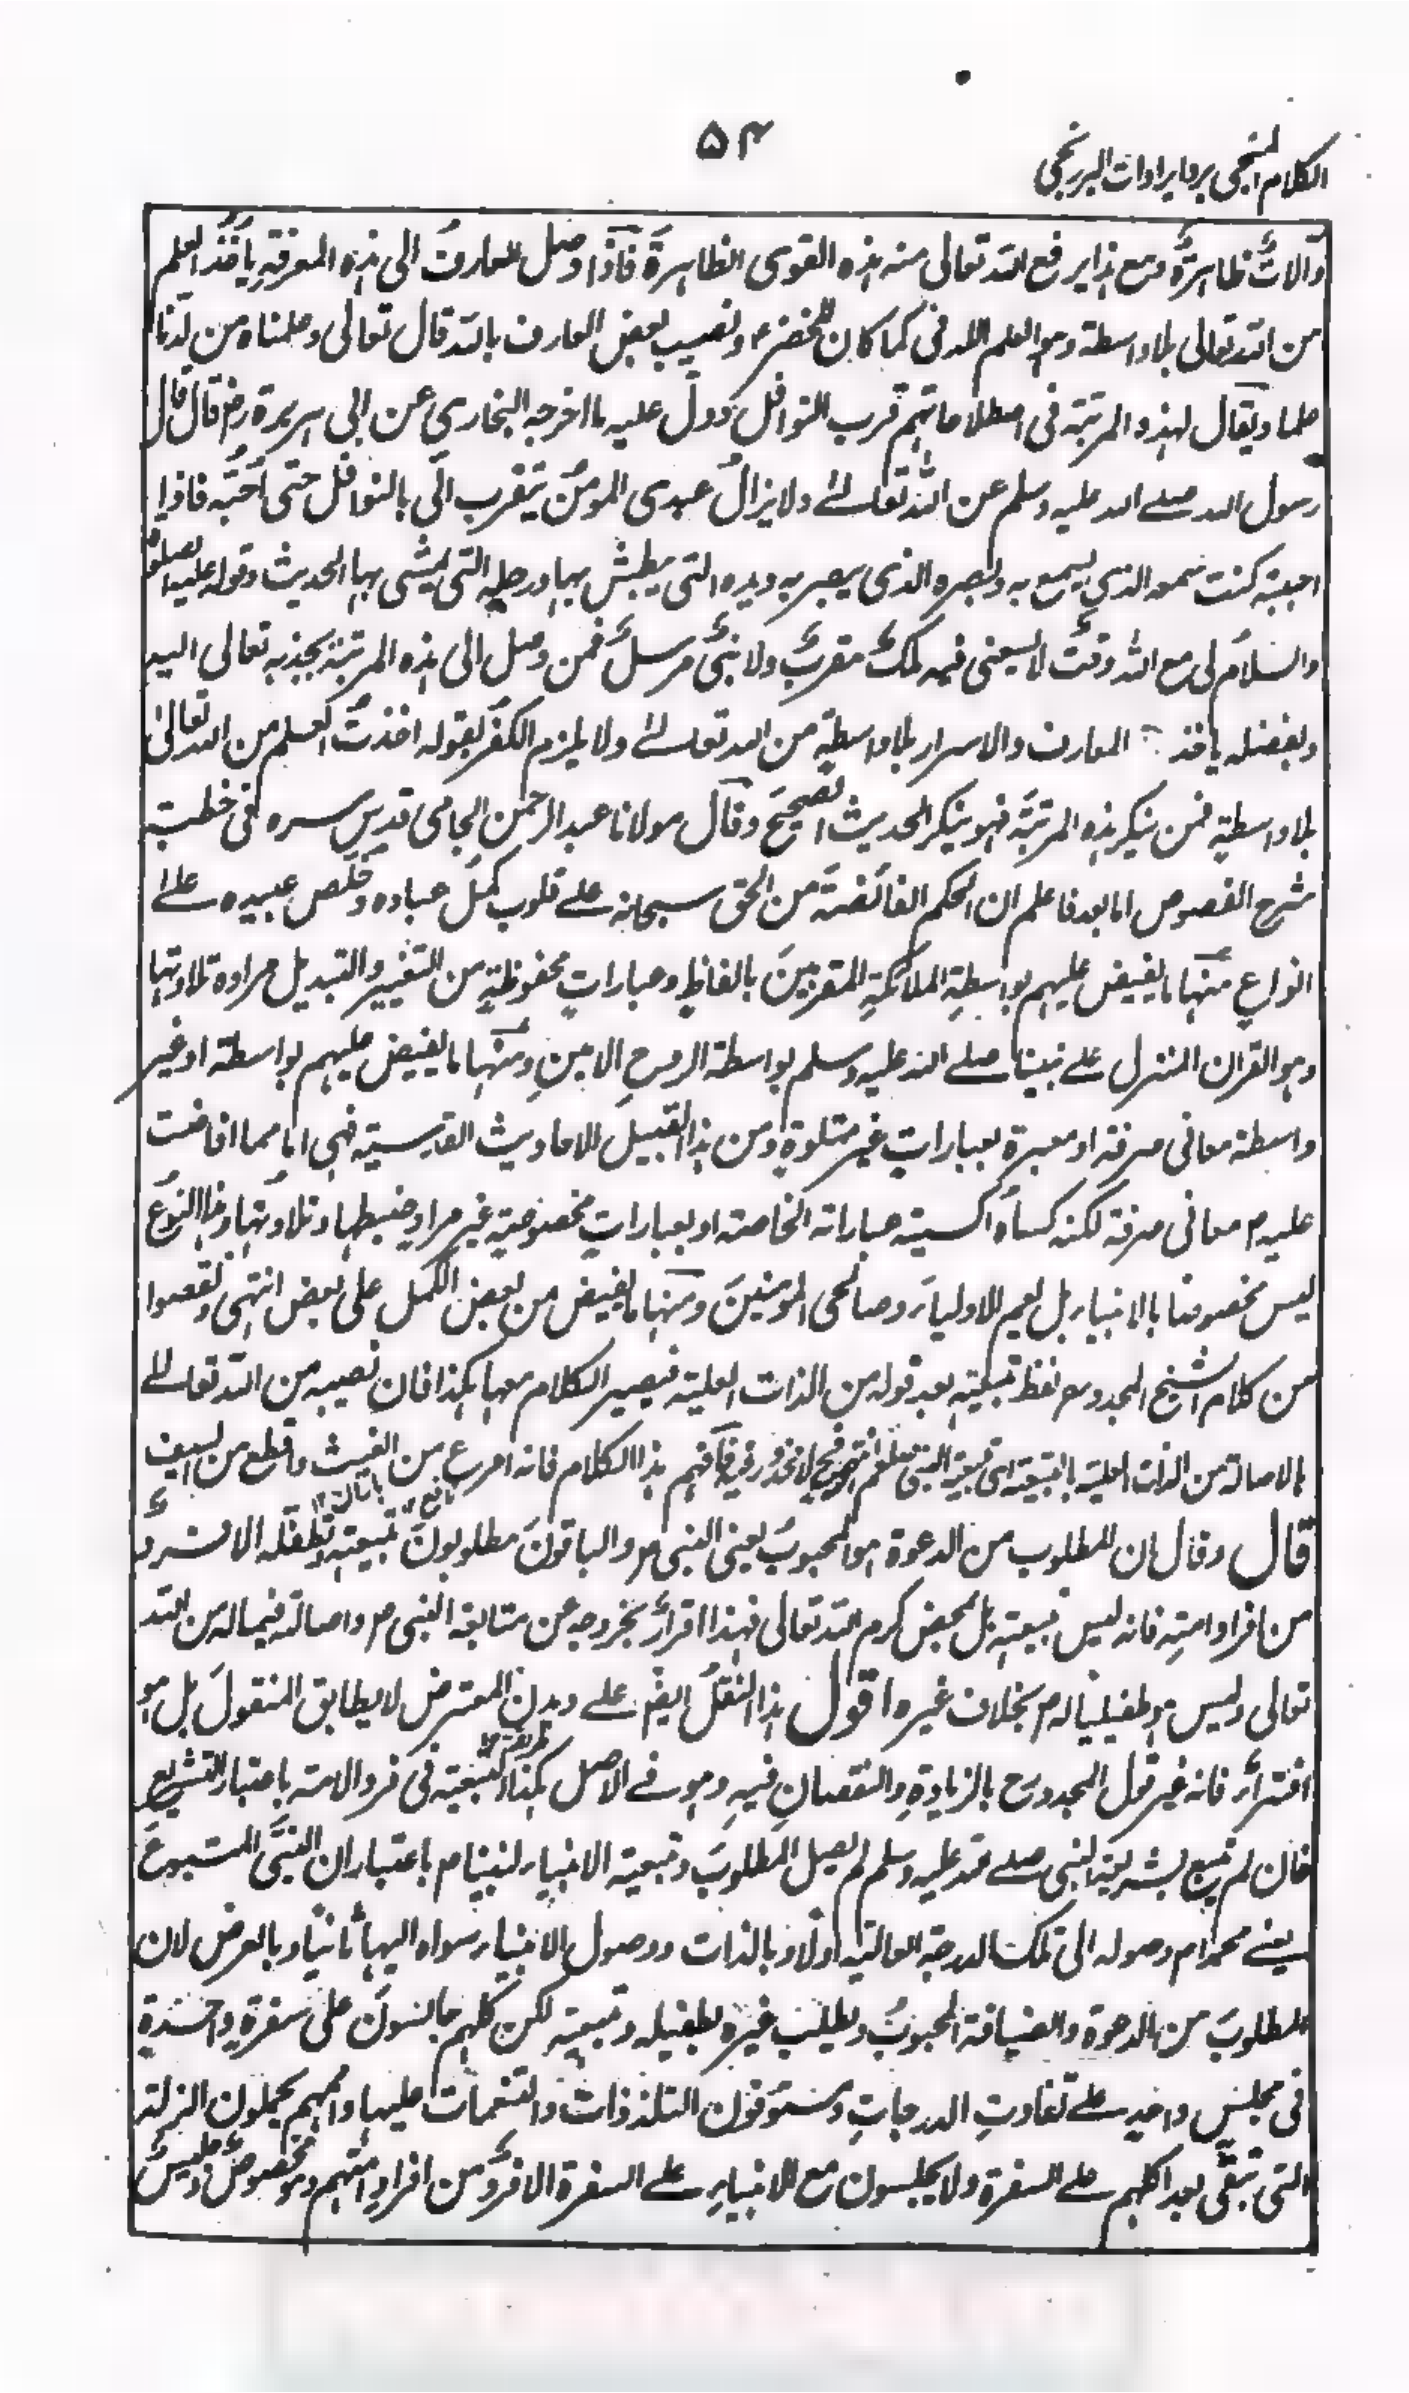 الکلام المنجی برد ایرادات البرزنجی
۵۴
وآلاتٌ ظاهرةٌ ومع هذا یرفع الله تعالی منه هذه القوی الظاهرة فاذا وصل العارف الی هذه المعرفة یاخذ العلم
من الله تعالی بلا واسطة وهو العلم اللدنی کما کان للخضرء ونصیب لبعض العارف بالله قال تعالی وعلمناه من لدنا
علما ویقال لهذه المرتبة فی اصطلاحاتهم قرب النوافل ودلّ علیه ما اخرجه البخاري عن ابی هریرة رض قال قال
رسول الله صلے الله علیه وسلم عن الله تعالے ولا یزالُ عبدی المومنُ یتقرب الیّ بالنوافل حتی اُحبَّه فاذا
احببته کنت سمعه الذي یسمع به وبصره الذی یبصر به ویده التی یبطش بها ورجله التی یمشی بها الحدیث وقوله علیه الصلوة
والسلام لی مع الله وقتٌ لا یسعنی فیه ملکٌ مقربٌ ولا نبیٌ مرسلٌ فمن وصل الی هذه المرتبة بجذبه تعالی الیه
وبفضله یاخذ المعارف والاسرار بلا واسطةٍ من الله تعالے ولا یلزم الکفرُ بقوله اخذتُ العلم من الله تعالیٰ
بلا واسطةٍ فمن ینکر هذه المرتبَة فهو ینکر الحدیث الصحیحَ وقال مولانا عبد الرحمن الجامی قدس سره فی خطبة
شرح الفصوص اما بعد فاعلم ان الحکم الفائضة من الحق سبحانه علے قلوب کمّل عباده وخلّص عبیده علے
انواعٍ منها ما یفیض علیهم بواسطةِ الملائکةِ المقربینَ بالفاظٍ وعباراتٍ محفوظةٍ من التغییر والتبدیل مرادة تلاوتها
وهو القران المنزل علے نبینا صلے الله علیه وسلم بواسطة الروح الامین ومنها ما یفیض علیهم بواسطة او غیر
واسطة معانی صرفة او معبرة بعباراتٍ غیر متلوةٍ ومن هذا القبیل الاحادیث القدسیة فهی اما مما افاضت
علیه م معانی صرفة لکنه کساهُ اکسیة عباراته الخاصة او بعباراتٍ مخصوصةٍ غیر مرادٍ ضبطها وتلاوتها وهذا النوع
لیس مخصوصا بالانبیاء بل یعم الاولیاءَ وصالحی المؤمنینَ ومنها ما یفیض من بعض الکمل علی بعض انتهی ونقصوا
من کلام الشیخ المجدد رح لفظ تبعیته بعد قوله من الذات العلیة فیصیر الکلام معها هکذا فان نصیبه من الله تعالے
بالاصالة من الذات العلیة بالتبعیة ای تبعیة النبی صلعم انتهی فحینئذ لا محذور فیه فافهم هذا الکلام فانه امرع من الغیث واقطع من السیف
قال وقال ان المطلوب من الدعوة هو المحبوبُ یعنی النبی صر والباقونَ مطلوبونَ بتبعیته وتطفله الا فردٌ
من افراد امتِه فانه لیس بتبعیته بل بمحض کرم الله تعالی فهذا اقرارٌ بخروجه عن متابعة النبی صر واصالة فیما له من الله
تعالی ولیس هو طفیلیا له م بخلاف غیره اقول هذا النقلُ ایضا علے دیدن المعترض لا یطابق المنقولَ بل هو
افتراءٌ فانه غیر قول المجدد رح بالزیادةِ والنقصانِ فیهِ وهو فے الاصل هکذا التبعیة فی فرد الامة باعتبار التشریع
فان لم یتبع بشریعة النبی صلے الله علیه وسلم لم یصل المطلوبَ وتبعیة الانبیاء لنبینا م باعتبار ان النبیَّ المتبوعَ
یعنے محمدا م وصوله الی تلک الدرجة العالیة اولًا وبالذات ووصول الانبیاء سواه الیها ثانیًا وبالعرض لان
المطلوبَ من الدعوة والضیافة المحبوبُ ویطلب غیره بطفیله وتبعیته لکن کلهم جالسونَ علی سفرةٍ واحدةٍ
فی مجلسٍ واحدٍ علے تفاوتِ الدرجاتِ ومستوفون التلذذات والتنعمات علیها واممهم یحملون الزلة
التی تبقی بعد اکلهم علے السفرة ولا یجلسون مع الانبیاءِ علے السفرة الا فردٌ من افراد امتهم وهو مخصوصٌ وجلیسٌ